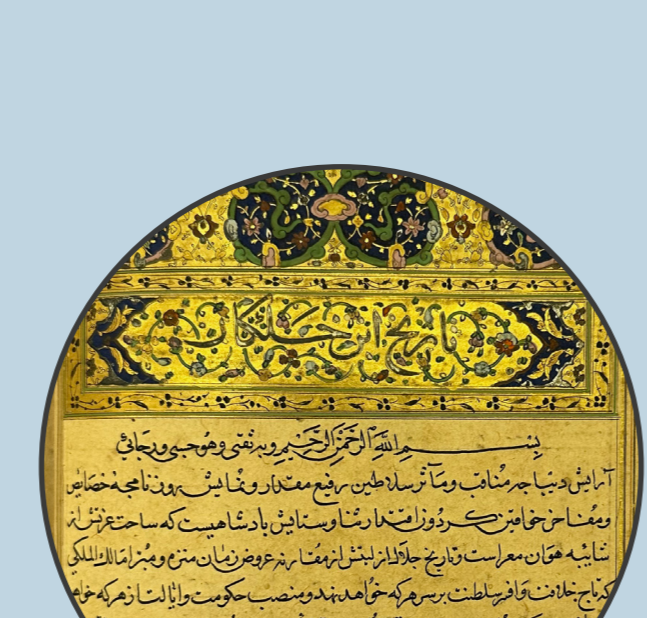 تاریخ ابن خلکان
بسم الله الرحمن الرحیم وبه ثقتی وهو حسبی ورجائی
آرایش دیباجه مناقب ومآثر سلاطین رفیع مقدار ونمایش روزنامجه خصایص
ومفاخر خواقین گردون اقتدار ثنا وستایش پادشاهیست که ساحت عزتش از
شایبه هوان معراست وتاریخ جلال از لیتش از مقارنه عروض زمان منزه ومبرا مالک الملکی
که تاج خلافت وافسر سلطنت بر سر هرکه خواهد نهد ومنصب حکومت وایالت از هرکه خواهد